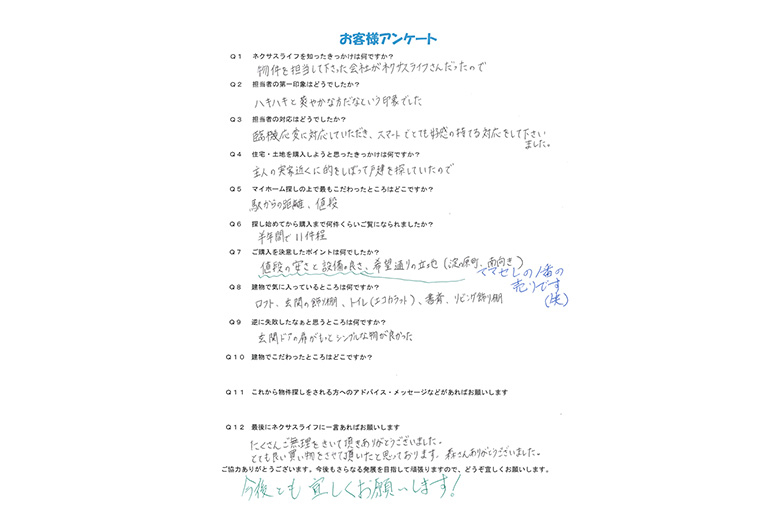 お客様アンケート
Q1 ネクサスライフを知ったきっかけは何ですか？
物件を担当して下さった会社がネクサスライフさんだったので
Q2 担当者の第一印象はどうでしたか？
ハキハキと爽やかな方だなという印象でした
Q3 担当者の対応はどうでしたか？
臨機応変に対応していただき、スマートでとても好感の持てる対応をして下さい
ました。
Q4 住宅・土地を購入しようと思ったきっかけは何ですか？
主人の実家近くに的をしぼって戸建を探していたので
Q5 マイホーム探しの上で最もこだわったところはどこですか？
駅からの距離、値段
Q6 探し始めてから購入まで何件くらいご覧になられましたか？
半年間で11件程
Q7 ご購入を決意したポイントは何でしたか？
値段の安さと設備の良さ、希望通りの立地（淀の原町、南向き）
ママセレの1番の
売りです
(笑)
Q8 建物で気に入っているところは何ですか？
ロフト、玄関の飾り棚、トイレ（エコカラット）、書斎、リビング飾り棚
Q9 逆に失敗したなぁと思うところは何ですか？
玄関ドアの扉がもっとシンプルな物が良かった
Q10 建物でこだわったところはどこですか？
Q11 これから物件探しをされる方へのアドバイス・メッセージなどがあればお願いします
Q12 最後にネクサスライフに一言あればお願いします
たくさんご無理をきいて頂きありがとうございました。
とても良い買い物をさせて頂いたと思っております。森さんありがとうございました。
ご協力ありがとうございます。今後もさらなる発展を目指して頑張りますので、どうぞ宜しくお願いします。
今後とも宜しくお願いします！